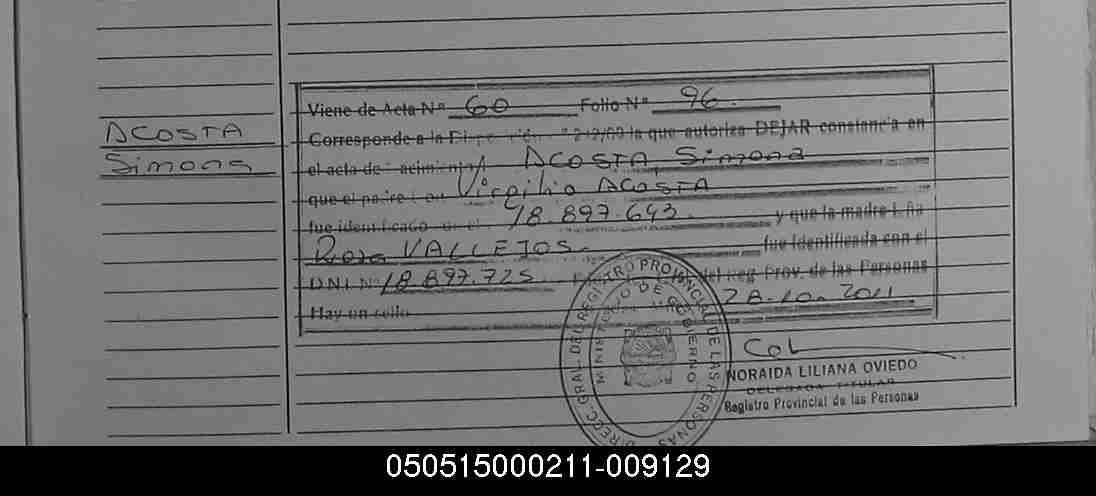 ACOSTA
Simona
Viene de Acta Nº 60 Folio Nº 96.
Corresponde a la 212/09 la que autoriza DEJAR constancia en
el acta de ACOSTA, Simona
que el padre Virgilio ACOSTA
fue identificado 18.897.643. y que la madre
Rosa VALLEJOS. fue identificada con el
DNI Nº 18.897.725 del Reg. Prov. de las Personas
Hay un sello 28.10.2011
DIRECC. GRAL. DEL REGISTRO PROVINCIAL DE LAS PERSONAS
MINISTERIO DE GOBIERNO
NORAIDA LILIANA OVIEDO
DELEGADA TITULAR
Registro Provincial de las Personas
050515000211-009129